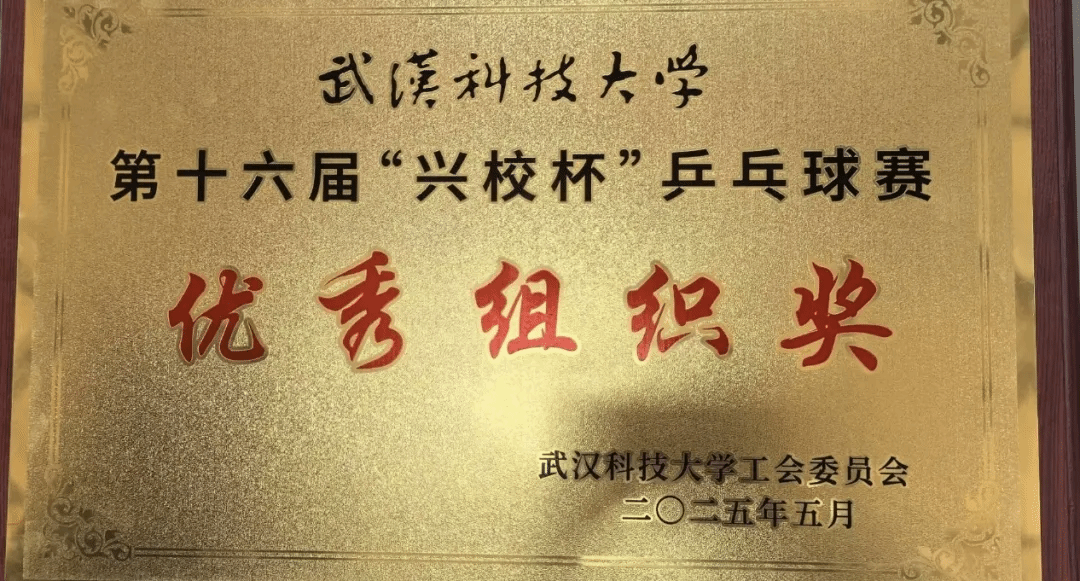 武漢科技大学
第十六届“兴校杯”乒乓球赛
优秀组织奖
武汉科技大学工会委员会
二〇二五年五月